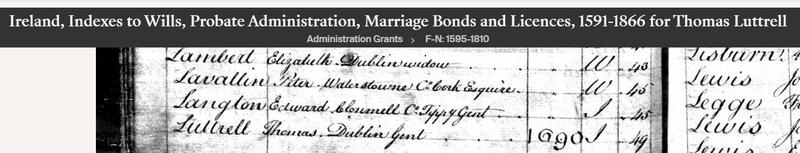 Ireland, Indexes to Wills, Probate Administration, Marriage Bonds and Licences, 1591-1866 for Thomas Luttrell
Administration Grants > F-N: 1595-1810
Lambert Elizabeth Dublin widow W 43 Lisburn
Lavallin Peter Waterstowne C. Cork Esquire W 45 Lewis
Langton Edward Clonmell C. Tippy Gent I 45 Legge
Luttrell Thomas Dublin Gent 1690 I 49 Lewis
Lewis